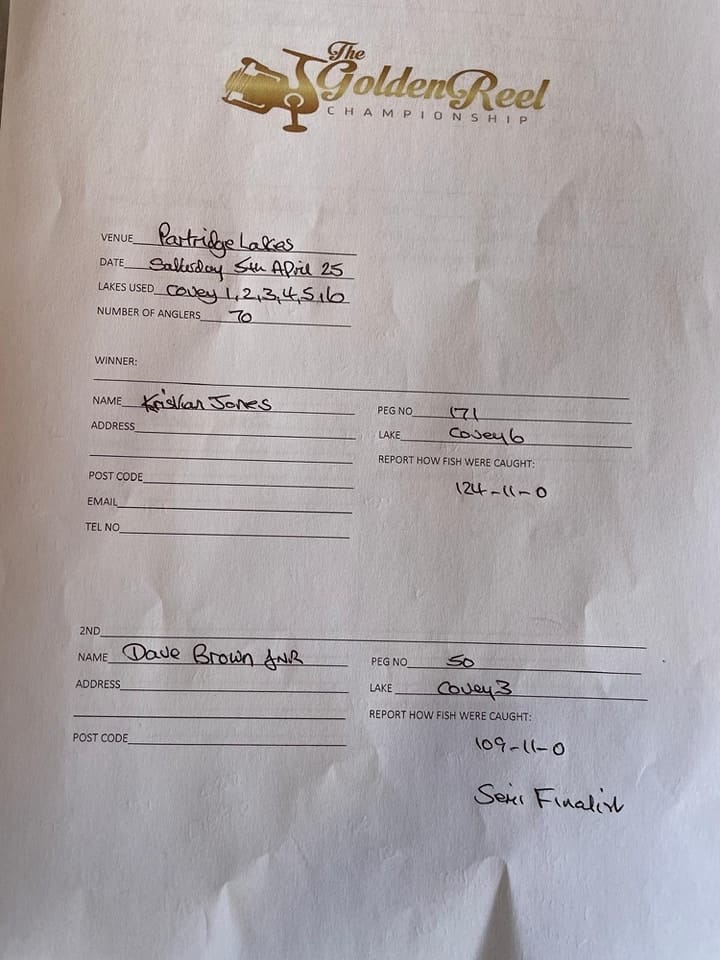 The
Golden Reel
CHAMPIONSHIP
VENUE Partridge Lakes
DATE Saturday 5th April 25
LAKES USED Covey 1,2,3,4,5,6
NUMBER OF ANGLERS 70
WINNER:
NAME Kristian Jones
ADDRESS
POST CODE
EMAIL
TEL NO
PEG NO 171
LAKE Covey 6
REPORT HOW FISH WERE CAUGHT:
124-11-0
2ND
NAME Dave Brown JNR
ADDRESS
POST CODE
PEG NO 50
LAKE Covey 3
REPORT HOW FISH WERE CAUGHT:
109-11-0
Semi Finalist